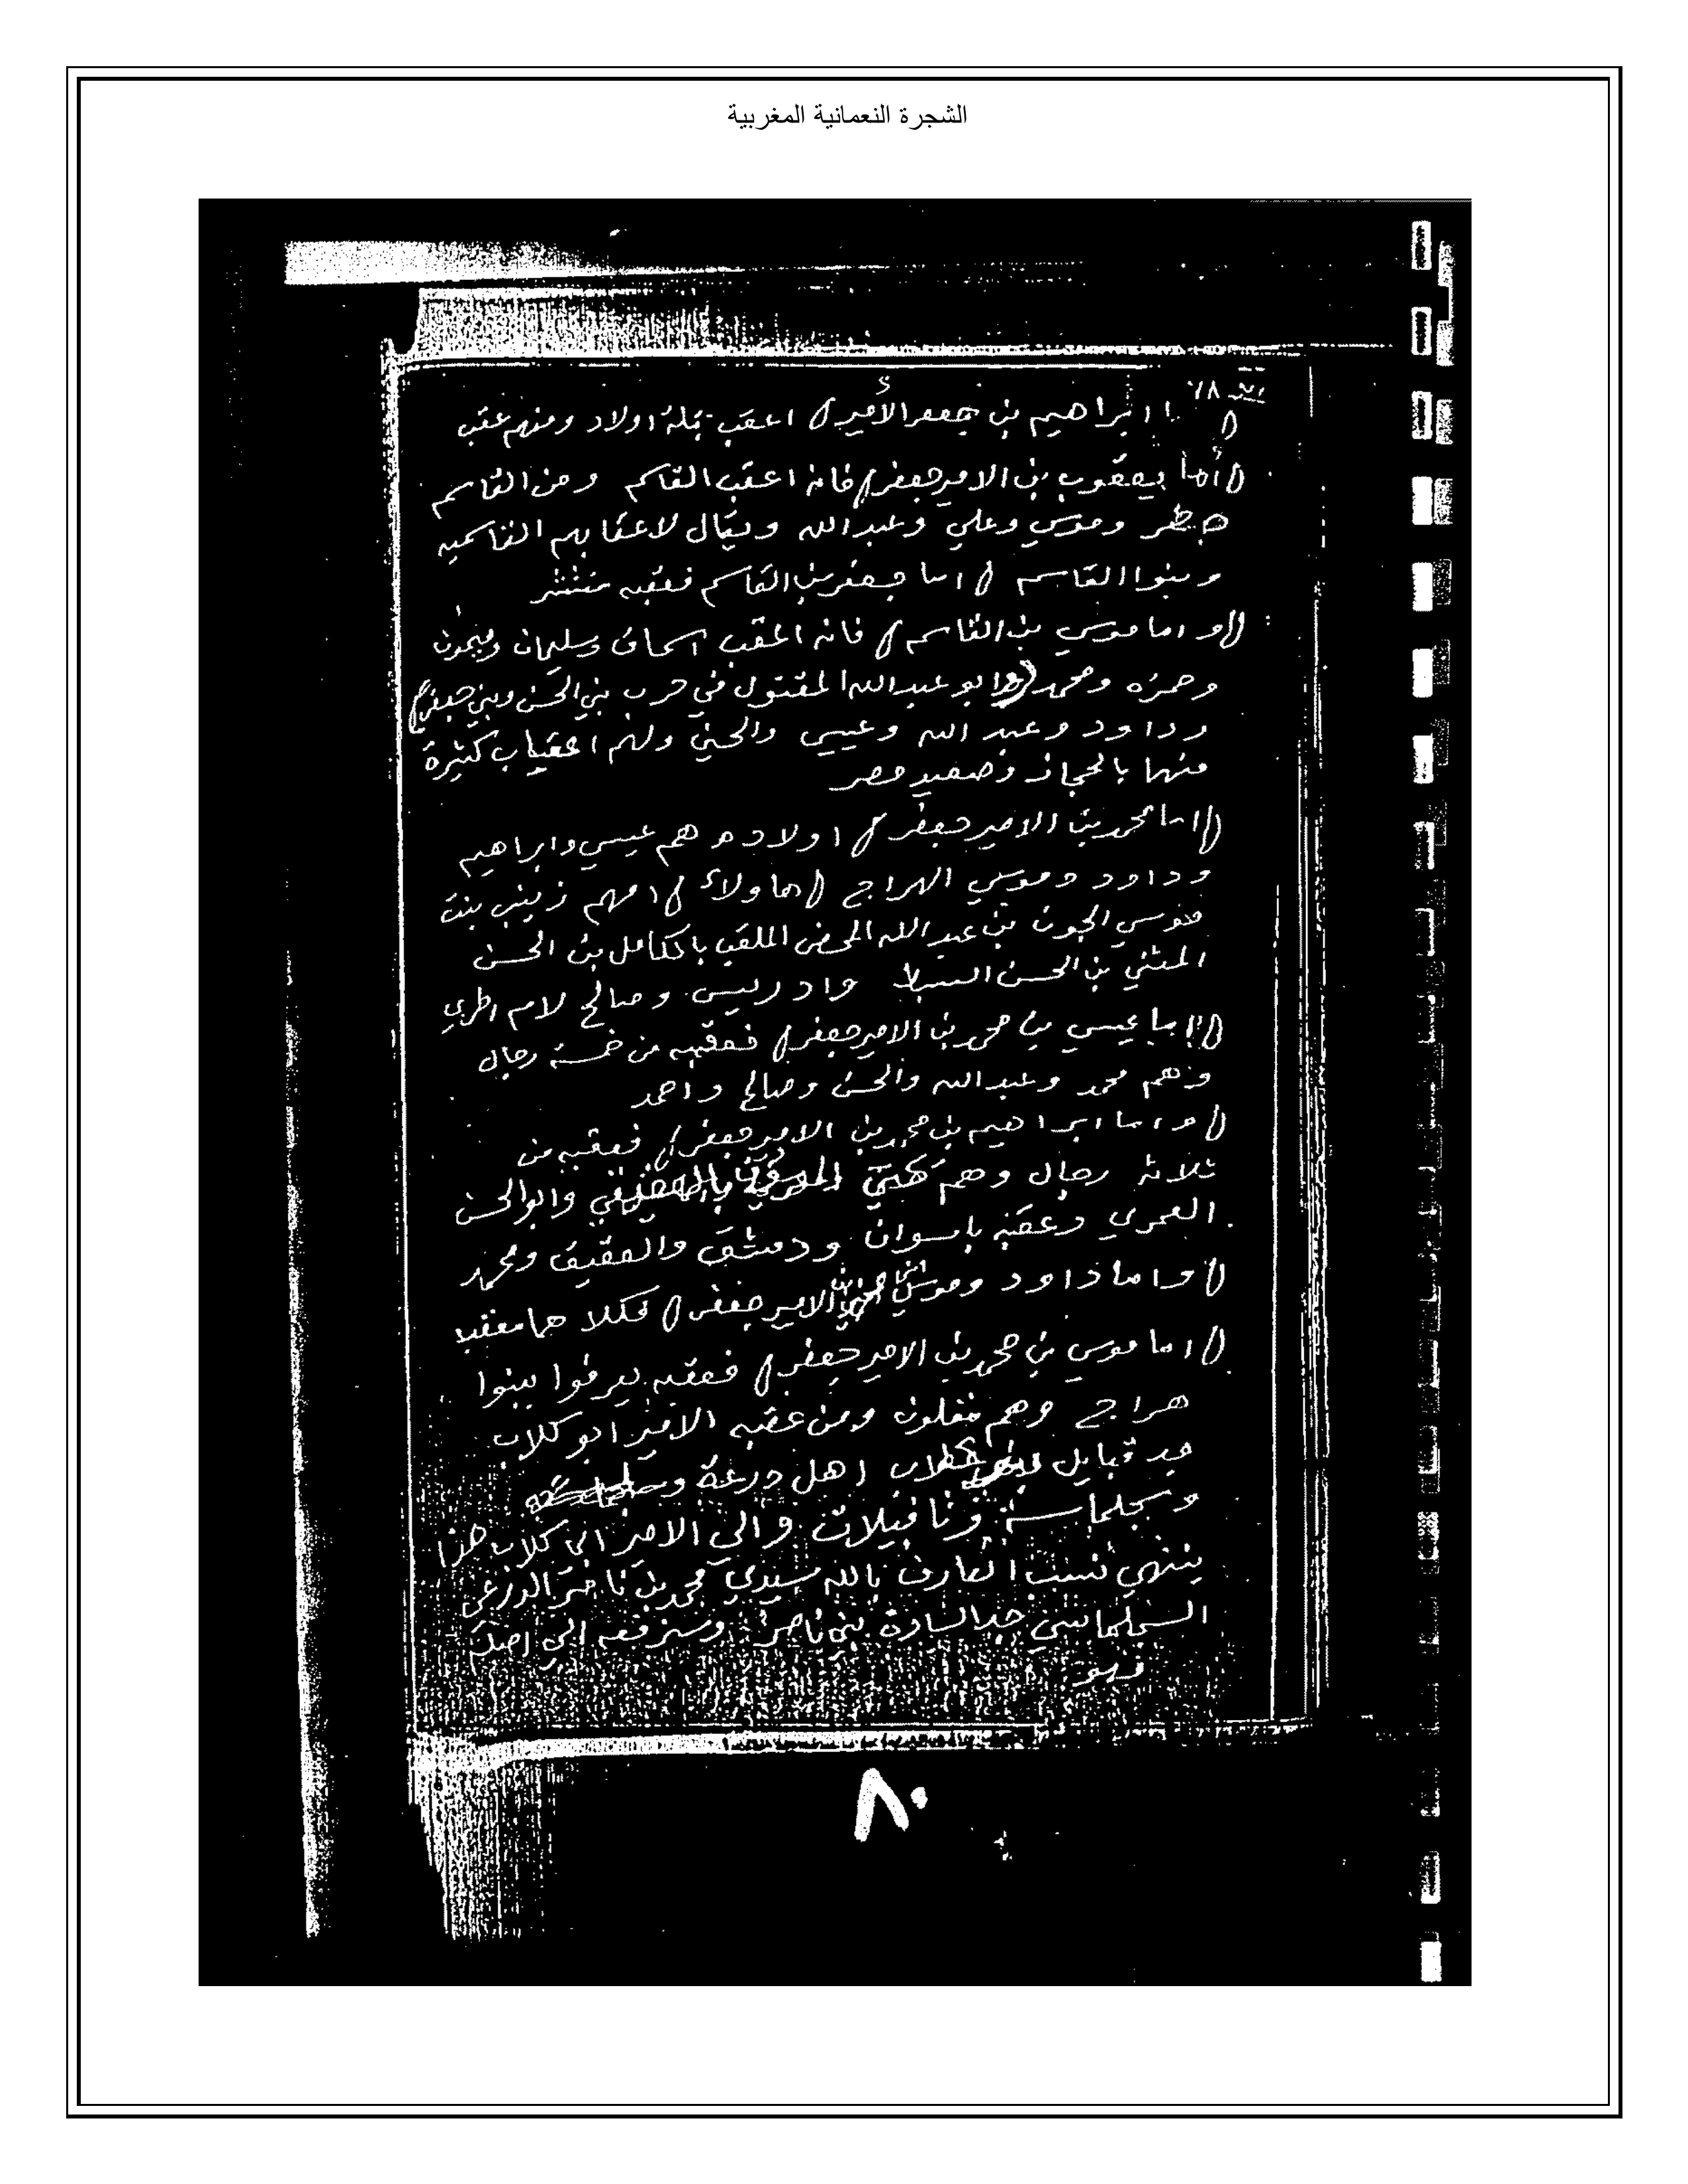 الشجرة النعمانية المغربية
٧٨
ابراهيم بن جعفر الأمير اعقب اولاد ومنهم عقب
أما يعقوب بن الامير جعفر فانه اعقب القاسم ومن القاسم
وموسي وعلي وعبد الله ويقال لاعقابهم القاسميه
وبنوا القاسم اما جعفر بن القاسم فعقبه منتشر
واما موسي بن القاسم فانه اعقب اسحاق وسليمان وميمون
وحمزه ومحمد ابو عبد الله المقتول في حرب بني الحسن وبني جعفر
وداود وعبد الله وعيسي والحسن ولهم اعقاب كثيرة
منها بالحجاز وصعيد مصر
اما محمد بن الامير جعفر اولاده هم عيسي وابراهيم
وداود وموسي الهراج هاولاء امهم زينب بنت
موسي الجون بن عبد الله المحض الملقب بالكامل بن الحسن
المثني بن الحسن السبط وادريس وصالح لام اخري
اما عيسي بن محمد بن الامير جعفر فعقبه من خمسة رجال
وهم محمد وعبد الله والحسن وصالح واحمد
واما ابراهيم بن محمد بن الامير جعفر فعقبه من
ثلاثة رجال وهم يحيي والحسن
العمري وعقبه باسوان ودمشق والعقيق ومحمد
واما داود وموسي الامير جعفر فكلاهما معقب
اما موسي بن محمد بن الامير جعفر فعقبه يعرفوا ببنوا
هراج وهم مقلون ومن عقبه الامير ابو كلاب
جد قبايل كلاب اهل درعة
وسجلماسة وتافيلات والي الامير ابي كلاب هذا
ينتهي نسب العارف بالله سيدي محمد بن ناصر الدرعي
السجلماسي جد السادة بني ناصر وسنرفعه الي اصله
فهو
٨٠